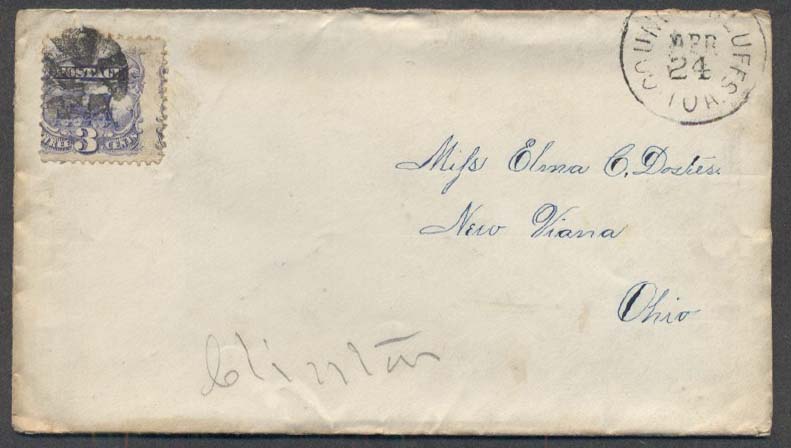 POSTAGE
3
THREE CENTS
COUN BLUFFS
APR
24
IOA
Miſs Elma C.
New Viana
Ohio
Clinton